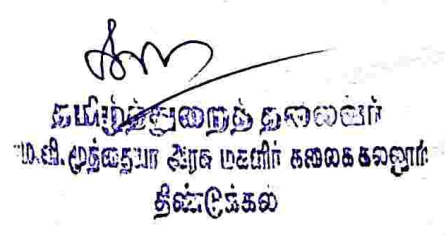 தமிழ்த்துறைத் தலைவர்
ம.வி. முத்தையா அரசு மகளிர் கலைக் கல்லூரி
திண்டுக்கல்